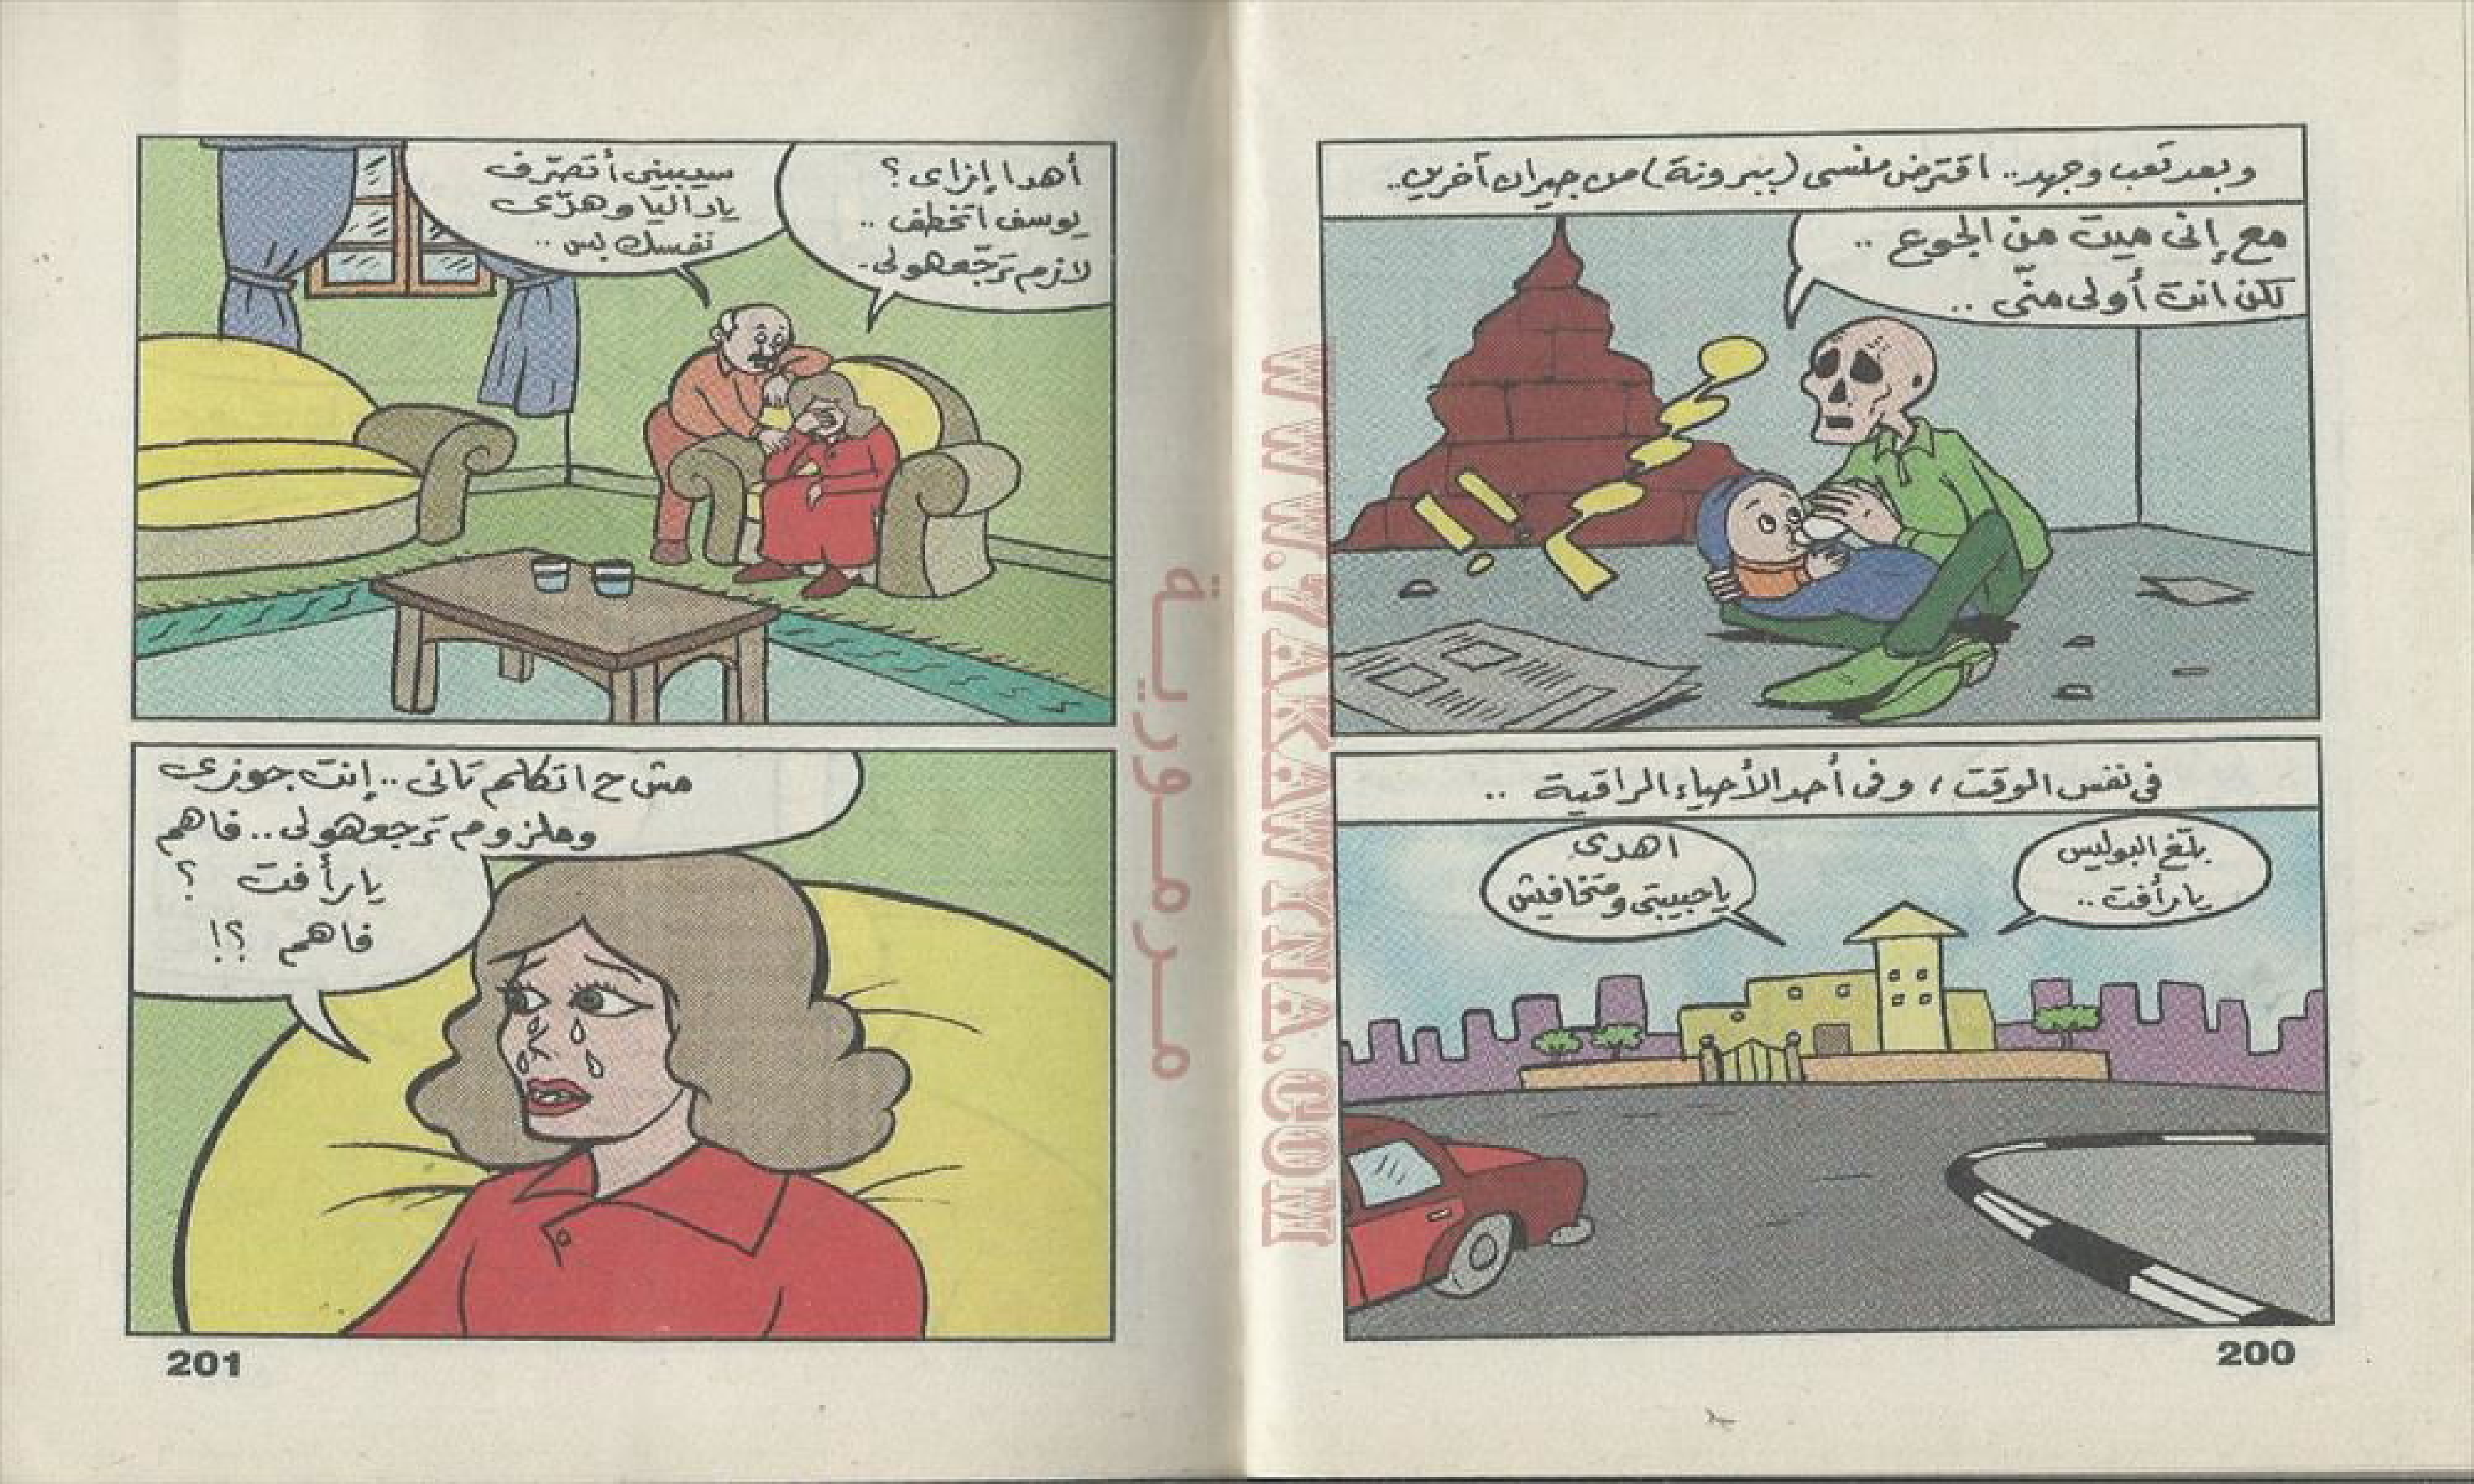 وبعد تعب وجهد.. اقترض منسى (ببرونة) من جيران آخرين..
مع إنى ميت من الجوع ..
لكن انت أولى منّى ..
فى نفس الوقت ، وفى أحد الأحياء الراقية ..
بلّغ البوليس
يا رأفت ..
اهدى
يا حبيبتى ومتخافيش
200
أهدا إزاى ؟
يوسف اتخطف ..
لازم ترجّعهولى.
سيبينى أتصرّف
يا داليا وهدّى
نفسك بس ..
مش ح اتكلم تانى .. إنت جوزى
وملزوم ترجعهولى .. فاهم
يا رأفت ؟
فاهم ؟!
201
مرمورية
WWW.7AKAWYNA.COM